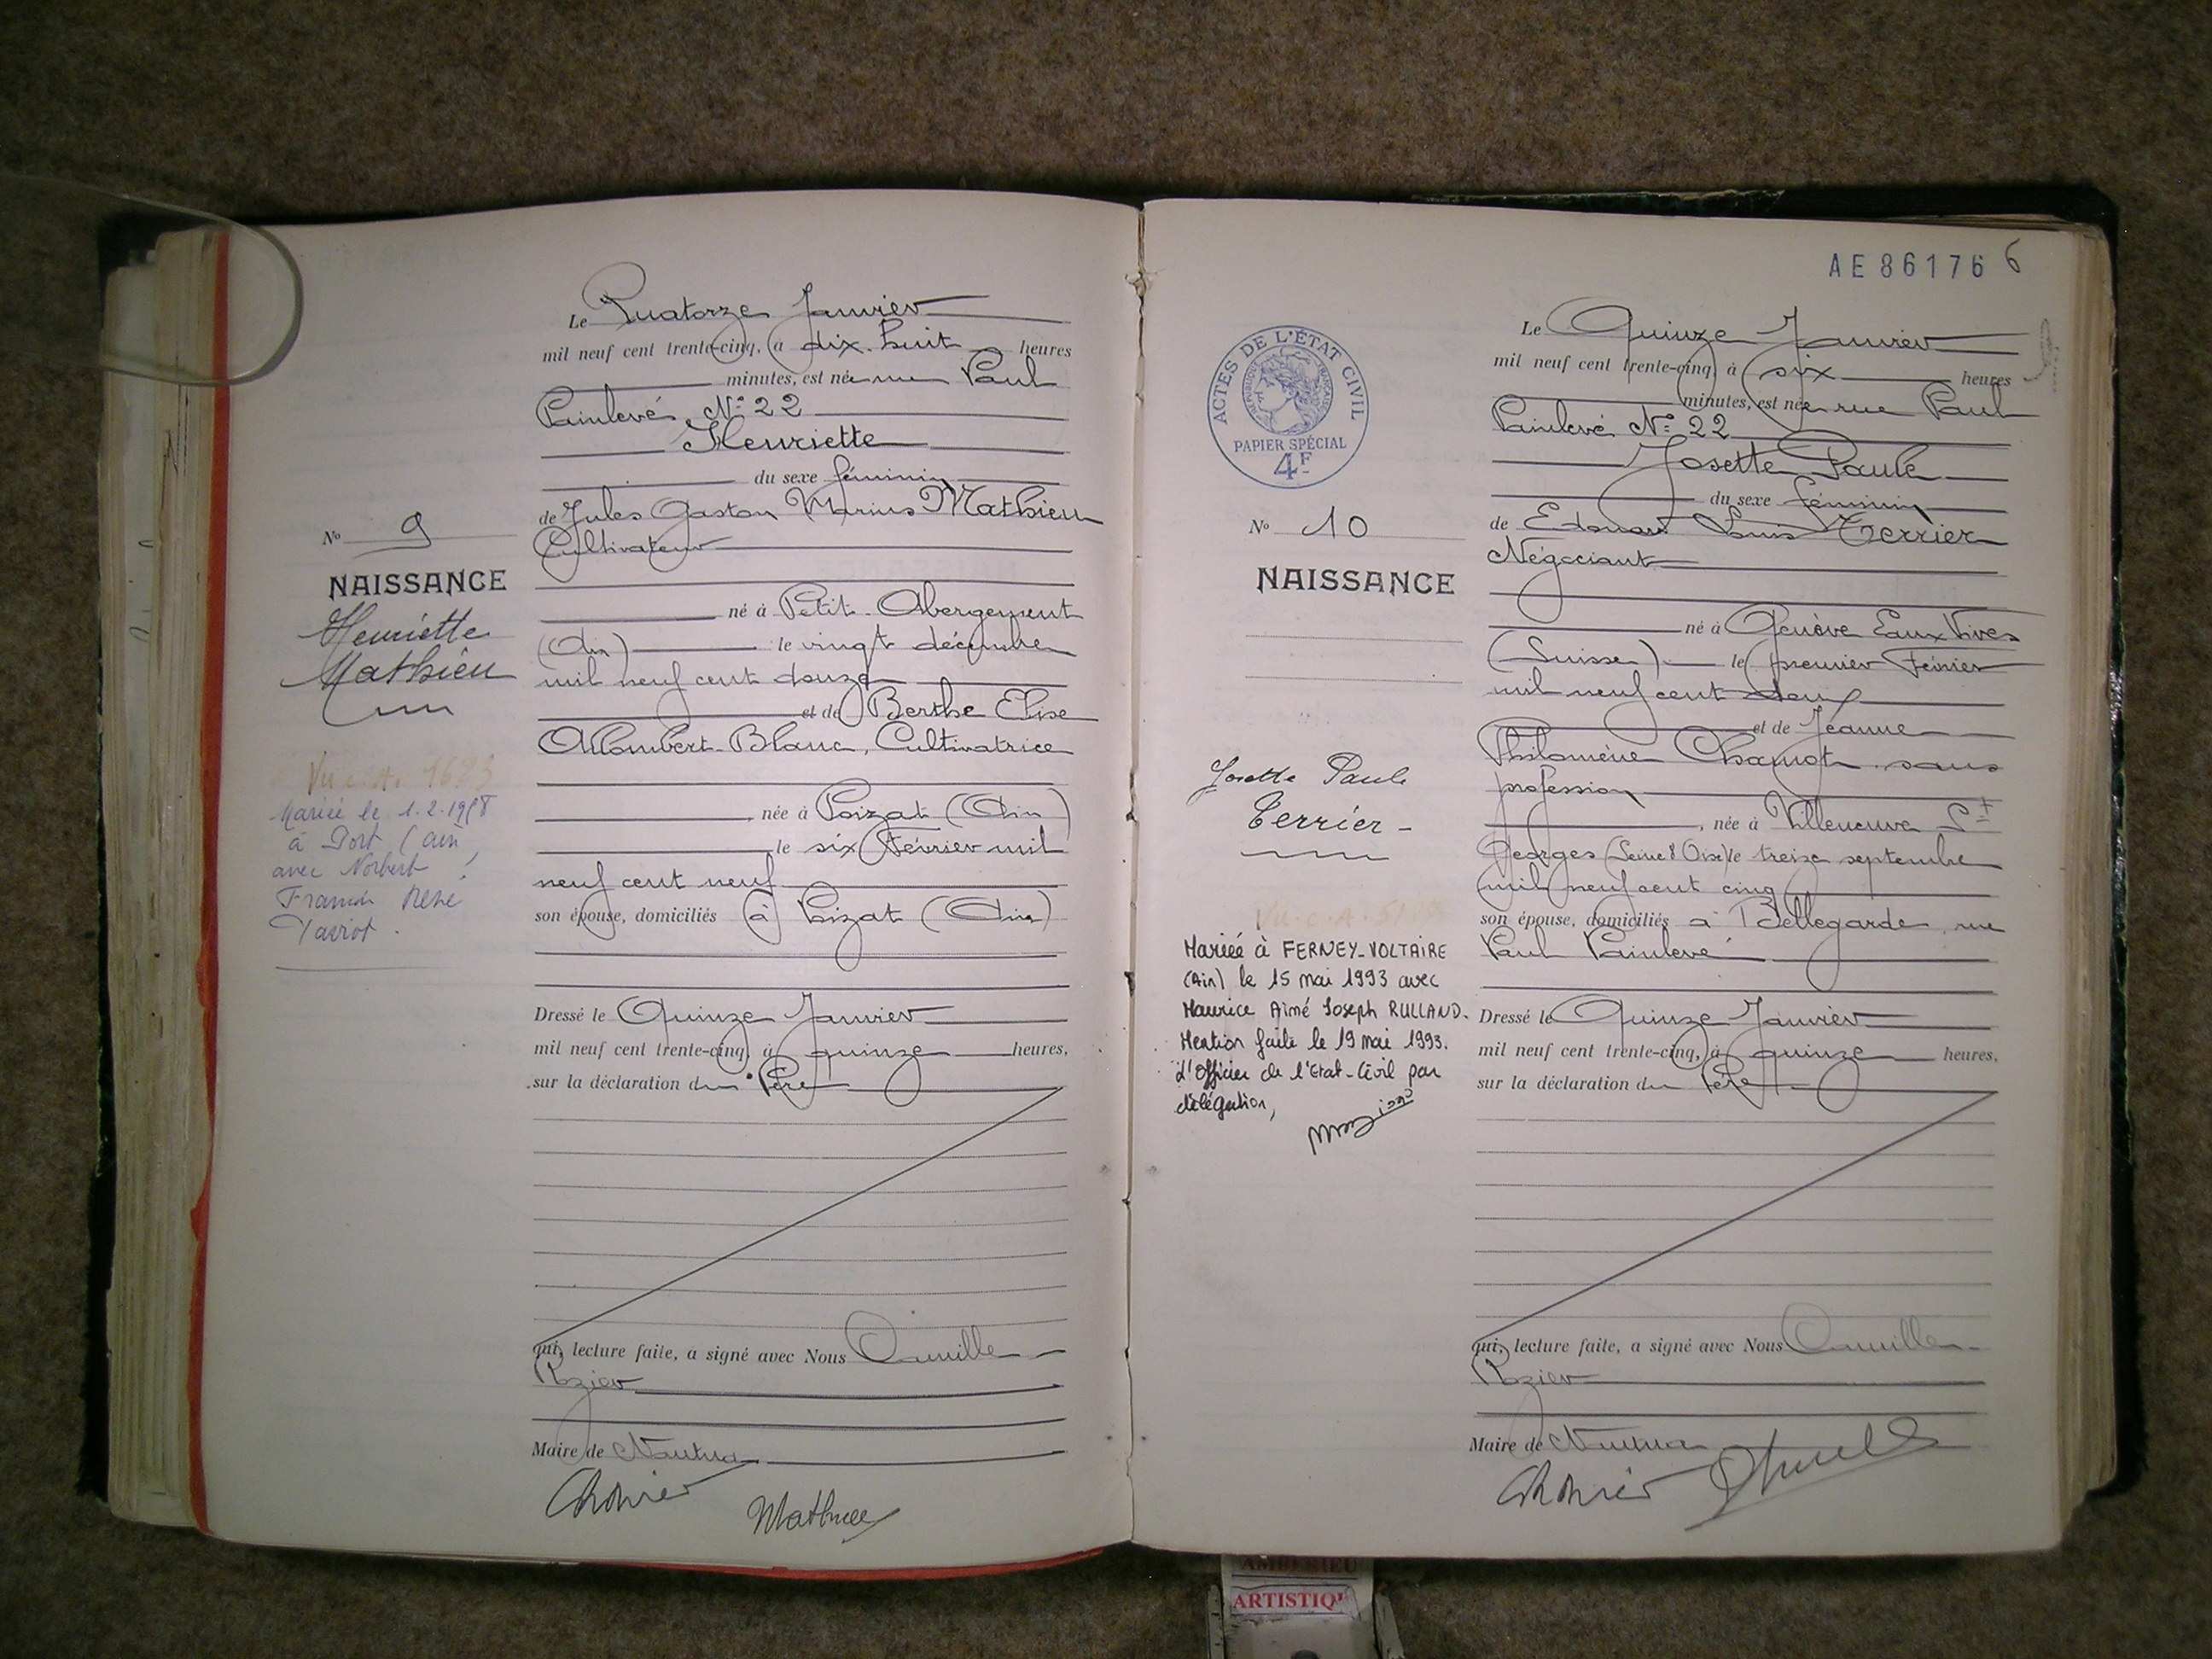 Le Quatorze Janvier
mil neuf cent trente-cinq, à dix-huit heures
minutes, est née rue Paul
Painlevé, N° 22
Henriette
du sexe féminin
de Jules Gaston Marius Mathieu
Cultivateur
né à Petit-Abergement
(Ain) le vingt décembre
mil neuf cent douze
et de Berthe Elise
Allombert-Blanc, Cultivatrice
née à Poizat (Ain)
le six Février mil
neuf cent neuf
son épouse, domiciliés à Poizat (Ain)
Dressé le Quinze Janvier
mil neuf cent trente-cinq, à quinze heures,
sur la déclaration du Père
qui, lecture faite, a signé avec Nous Camille
Rozier
Maire de Nantua
Mathieu
N° 9
NAISSANCE
Henriette
Mathieu
Mariée le 1-2-1958
à Port (Ain
avec Norbert
René
AE 86176 6
ACTES DE L'ÉTAT CIVIL
PAPIER SPÉCIAL
4F
N° 10
NAISSANCE
Josette Paule
Terrier
Mariée à FERNEY-VOLTAIRE
(Ain) le 15 mai 1993 avec
Maurice Aimé Joseph RULLAND.
Mention faite le 19 mai 1993.
L'Officier de l'Etat-Civil par
délégation,
Le Quinze Janvier
mil neuf cent trente-cinq, à six heures
minutes, est née rue Paul
Painlevé N° 22
Josette Paule
du sexe féminin
de Edouard Louis Terrier
Négociant
né à Genève Eaux Vives
(Suisse) le premier Février
mil neuf cent deux
et de Jeanne
Philomène Chamot, sans
profession
, née à Villeneuve St
Georges (Seine & Oise) le treize septembre
mil neuf cent cinq
son épouse, domiciliés à Bellegarde, rue
Paul Painlevé
Dressé le Quinze Janvier
mil neuf cent trente-cinq, à quinze heures,
sur la déclaration du Père
qui, lecture faite, a signé avec Nous Camille
Rozier
Maire de Nantua
ARTISTIQU